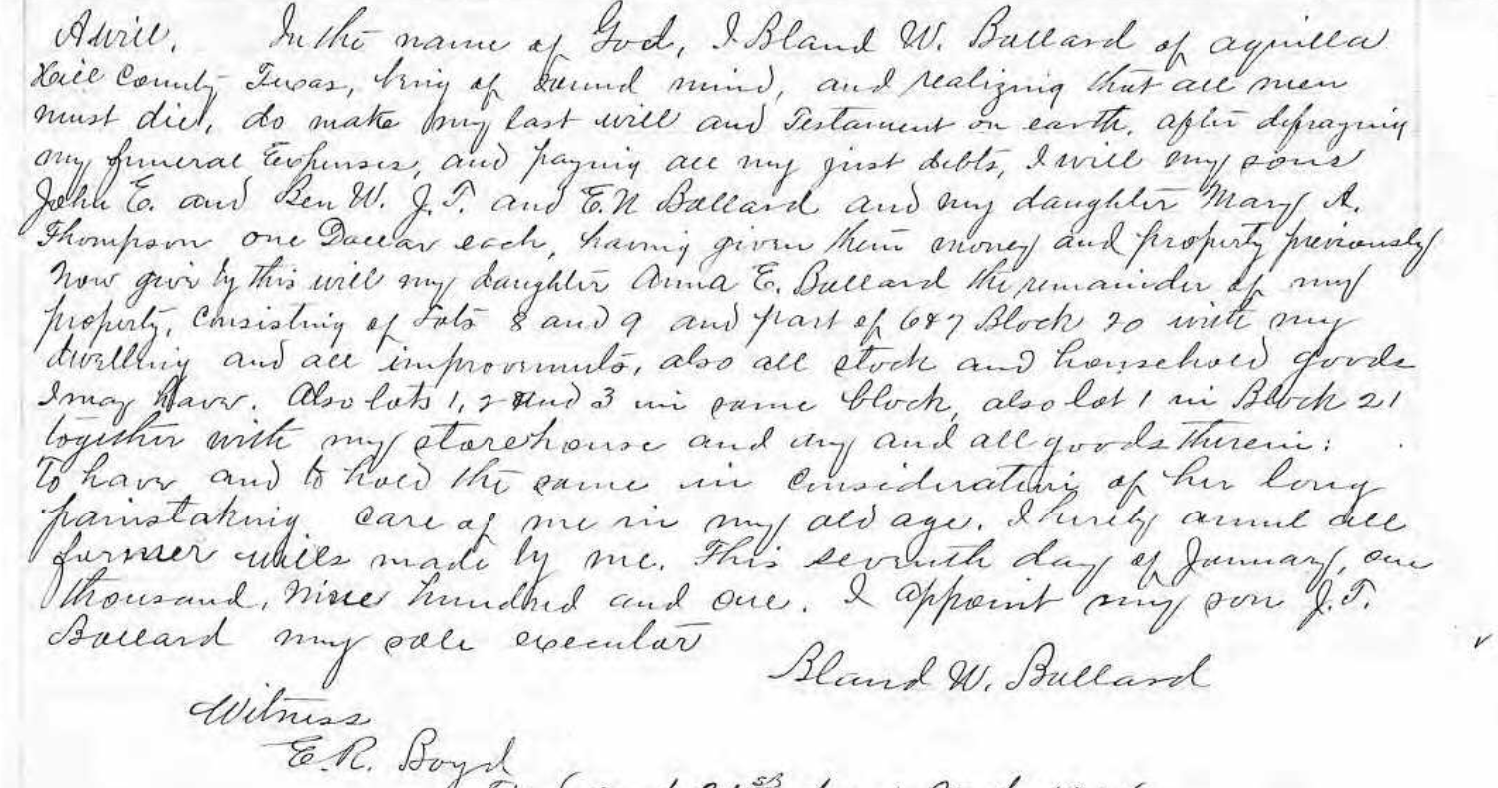 A will. In the name of God, I Bland W. Ballard of aquilla
Hill County Texas, being of sound mind, and realizing that all men
must die, do make my last will and Testament on earth. after defraying
my funeral Expenses, and paying all my just debts, I will my sons
John E. and Ben W. J. T. and E. N Ballard and my daughter Mary A.
Thompson one Dollar each, having given them money and property previously
Now give by this will my daughter Anna E. Ballard the remainder of my
property, Consisting of Lots 8 and 9 and part of 6&7 Block 20 with my
dwelling and all improvements, also all stock and household goods
I may have. Also lots 1, 2 and 3 in same block, also lot 1 in Block 21
together with my storehouse and any and all goods therein:
To have and to hold the same in consideration of her long
painstaking care of me in my old age. I hereby annul all
former wills made by me. This seventh day of January, one
thousand, Nine hundred and one. I appoint my son J. T.
Ballard my sole executor
Bland W. Ballard
Witness
E. R. Boyd